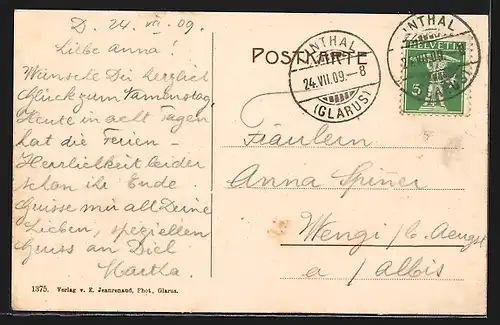 D. 24. VII. 09.
Liebe Anna!
Wünsche Dir herzlich
Glück zum Namenstag,
Heute in acht Tagen
hat die Ferien-
Herrlichkeit leider
schon ihr Ende.
Grüsse mir all Deine
Lieben, speziellen
Gruss an Dich
Martha
1375. Verlag v. E. Jeanrenaud, Phot., Glarus.
POSTKARTE
LINTHAL
24.VII.09-8
(GLARUS)
LINTHAL
HELVETIA
5
Fräulein
Anna Spinner
Wengi b. Aeugst
a / Albis